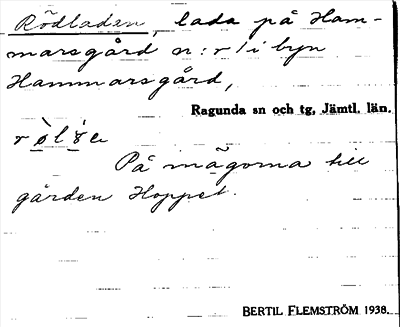 Rödladen, lada på Ham-
marsgård n:r 1 i byn
Hammarsgård,
Ragunda sn och tg, Jämtl. län.
På mågorna till
gården Hoppet.
BERTIL FLEMSTRÖM 1938.